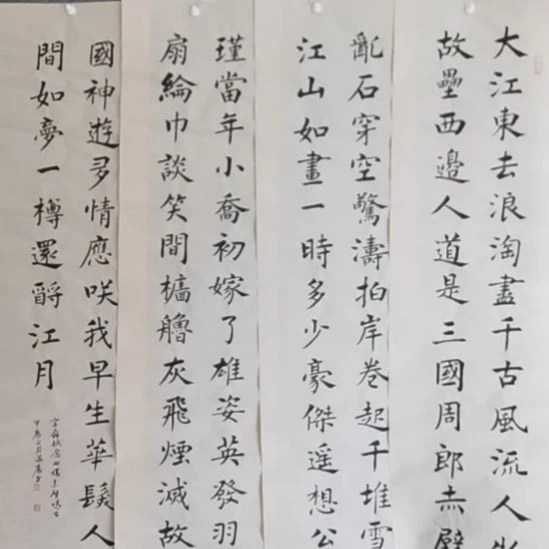 大江東去浪淘盡千古風流人物
故壘西邊人道是三國周郎赤壁
亂石穿空驚濤拍岸卷起千堆雪
江山如畫一時多少豪傑遥想公
瑾當年小喬初嫁了雄姿英發羽
扇綸巾談笑間檣艫灰飛煙滅故
國神遊多情應咲我早生華髮人
間如夢一樽還酹江月